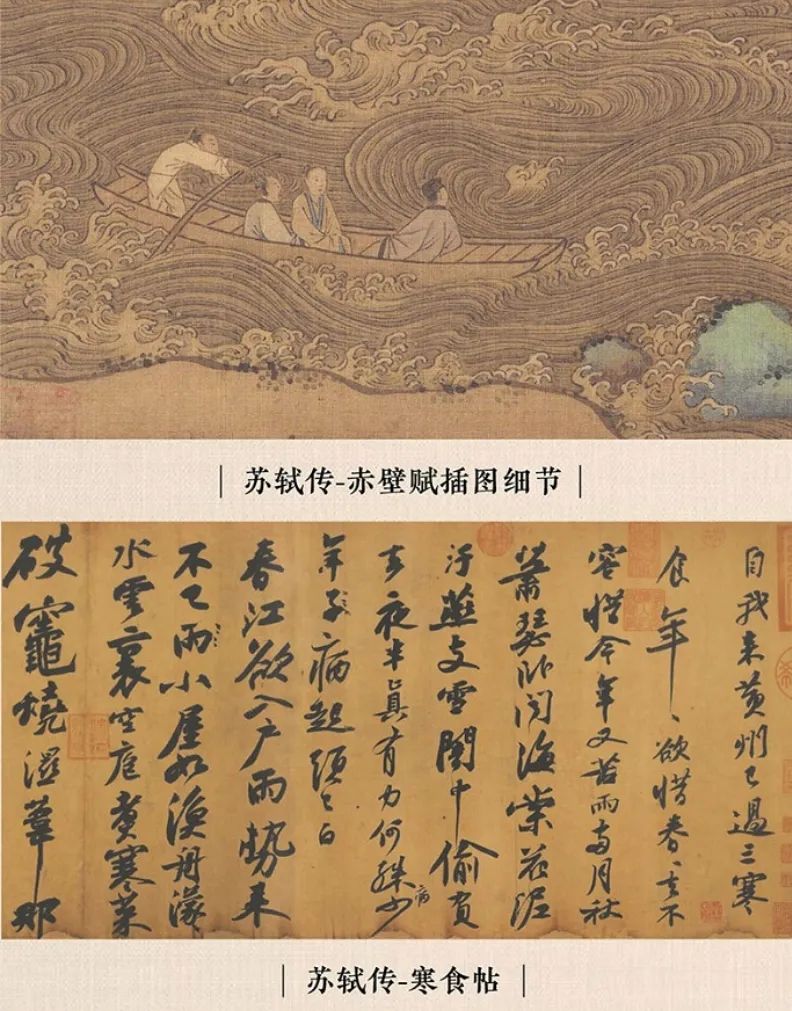 苏轼传-赤壁赋插图细节
自我来黄州已過三寒
食年〻欲惜春〻去不
容惜今年又苦雨兩月秋
蕭瑟卧聞海棠花泥
汙燕支雪闇中偷負
去夜半真有力何殊少病
年子病起頭已白
春江欲入户雨勢来
不已雨小屋如漁舟濛
水雲裏空庖煮寒菜
破竈燒濕葦那
苏轼传-寒食帖